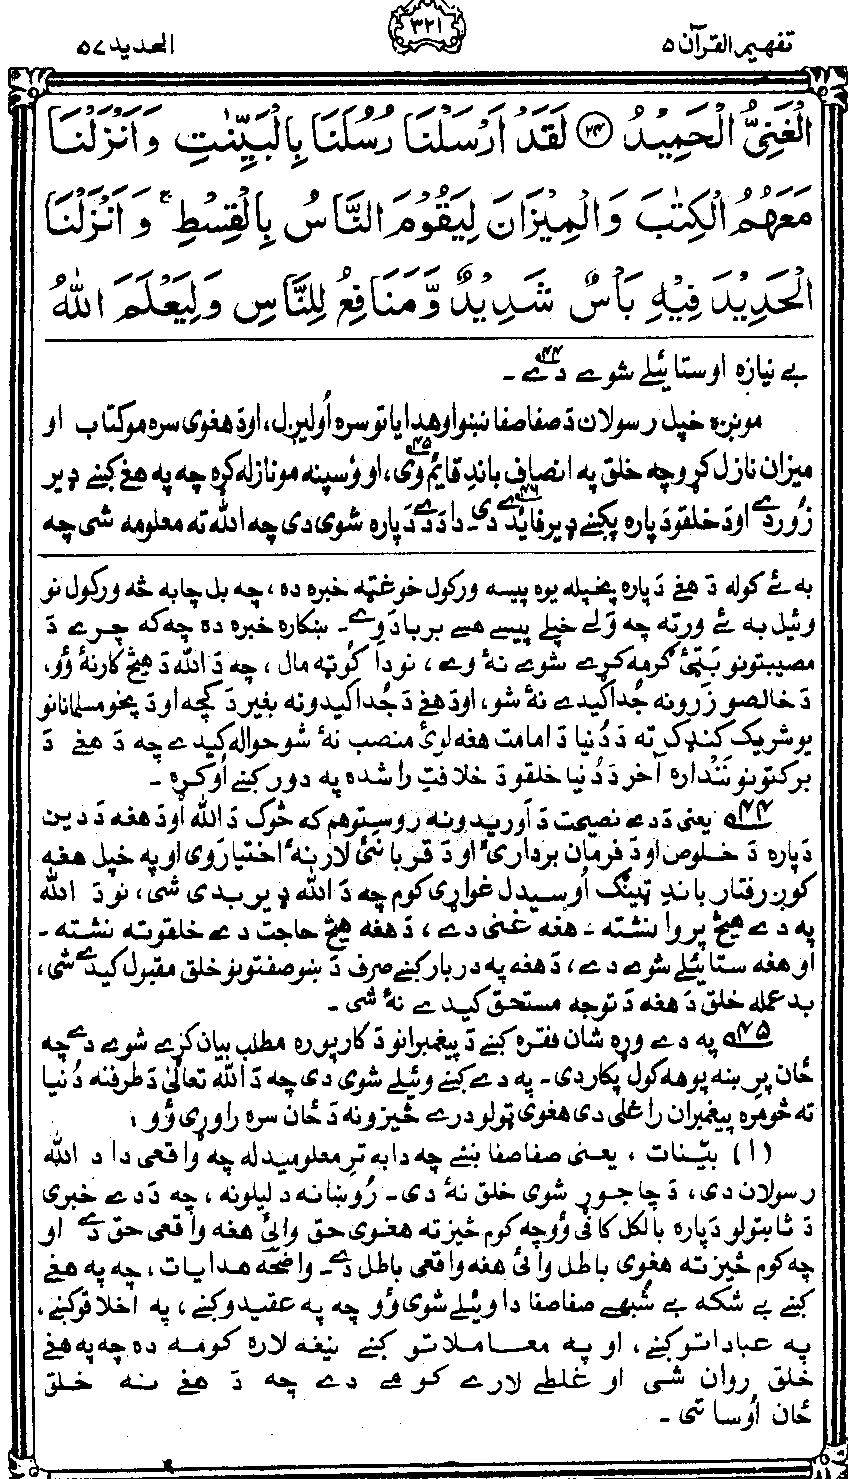 تفهيم القرآن ۵
۳۲۱
الحديد ۵۷
الْغَنِىُّ الْحَمِيْدُ ﴿۲۴﴾ لَقَدْ اَرْسَلْنَا رُسُلَنَا بِالْبَيِّنٰتِ وَاَنْزَلْنَا
مَعَهُمُ الْكِتٰبَ وَالْمِيْزَانَ لِيَقُوْمَ النَّاسُ بِالْقِسْطِ ۚ وَاَنْزَلْنَا
الْحَدِيْدَ فِيْهِ بَاْسٌ شَدِيْدٌ وَّمَنَافِعُ لِلنَّاسِ وَلِيَعْلَمَ اللّٰهُ
بے نيازه اوستائيلے شوے دے ۴۴ ۔
مونږه خپل رسولان دَ صفا صفا نښو او هداياتو سره اُوليږل، اودَ هغوى سره مو کتاب او
ميزان نازل کړو چه خلق په انصاف باندِ قايم وى ۴۵، او وٗسپنه مو نازله کړه چه په هغے کښے ډير
زور دے اودَ خلقو دَپاره پکښے ډير فايدے دى ۴۶۔ دا دَ دے دَپاره شوى دى چه الله ته معلومه شى چه
به ئے کوله دَ هغے دَپاره پخپله يوه پيسه ورکول خوغټه خبره ده، چه بل چابه څه ورکول نو
وئيل به ئے ورته چه وَلے خپلے پيسے هسے بربادوے۔ ښکاره خبره ده چه که چرے دَ
مصيبتونو بَټئ ګرمه کړے شوے نهٔ وے، نودا کُوټه مال، چه دَ الله دَ هيڅ کار نهٔ وٗو،
دَ خالصو زَرونه جُدا کيدے نهٔ شو، اودَ هغے دَ جُدا کيدونه بغير دَ کچه اودَ پخو مسلمانانو
يو شريک کنډک ته دَ دُنيا دَ امامت هغه لوئ منصب نهٔ شو حواله کيدے چه دَ هغے دَ
برکتونو نَنداره آخر دَ دُنيا خلقو دَ خلافتِ راشده په دور کښے اُوکړه ۔
۴۴ يعنى دَ دے نصيحت دَ آوريدونه روستوهم که څوک دَ الله اودَ هغه دَ دين
دَپاره دَ خلوص اودَ فرمان بردارئ اودَ قربانئ لار نهٔ اختيارَوى اوپه خپل هغه
کوږ رفتار باندِ ټينګ اُوسيدل غواړى کوم چه دَ الله ډير بدى شى، نودَ الله
په دے هيڅ پروا نشته۔ هغه غنى دے، دَ هغه هيڅ حاجت دے خلقوته نشته۔
او هغه ستائيلے شوے دے، دَ هغه په دربار کښے صرف دَ ښو صفتونو خلق مقبول کيدے شى،
بد عمله خلق دَ هغه دَ توجه مستحق کيدے نهٔ شى ۔
۴۵ په دے وړه شان فقره کښے دَ پيغمبرانو دَ کار پوره مطلب بيان کړے شوے دے چه
ځان پرِ ښه پوهه کول پکاردى۔ په دے کښے وئيلے شوى دى چه دَ الله تعالىٰ دَ طرفنه دُنيا
ته څومره پيغمبران راغلى دى هغوى ټولو درے څيزونه دَ ځان سره راوړى وٗو :
(۱) بيّنات، يعنى صفا صفا نښے چه دابه ترِ معلوميدله چه واقعى دا دَ الله
رسولان دى، دَ چا جوړ شوى خلق نهٔ دى۔ روښانه دليلونه، چه دَ دے خبرى
دَ ثابتولو دَپاره بالکل کافى وٗو چه کوم څيزته هغوى حق وائى هغه واقعى حق دے او
چه کوم څيزته هغوى باطل وائى هغه واقعى باطل دے۔ واضحه هدايات، چه په هغے
کښے بے شکه بے شُبهے صفا صفا دا وئيلے شوى وٗو چه په عقيدو کښے، په اخلاقو کښے،
په عباداتو کښے، او په معاملاتو کښے نيغه لاره کومه ده چه په هغے
خلق روان شى او غلطے لارے کومے دى چه دَ هغے نه خلق
ځان اُوساتى ۔